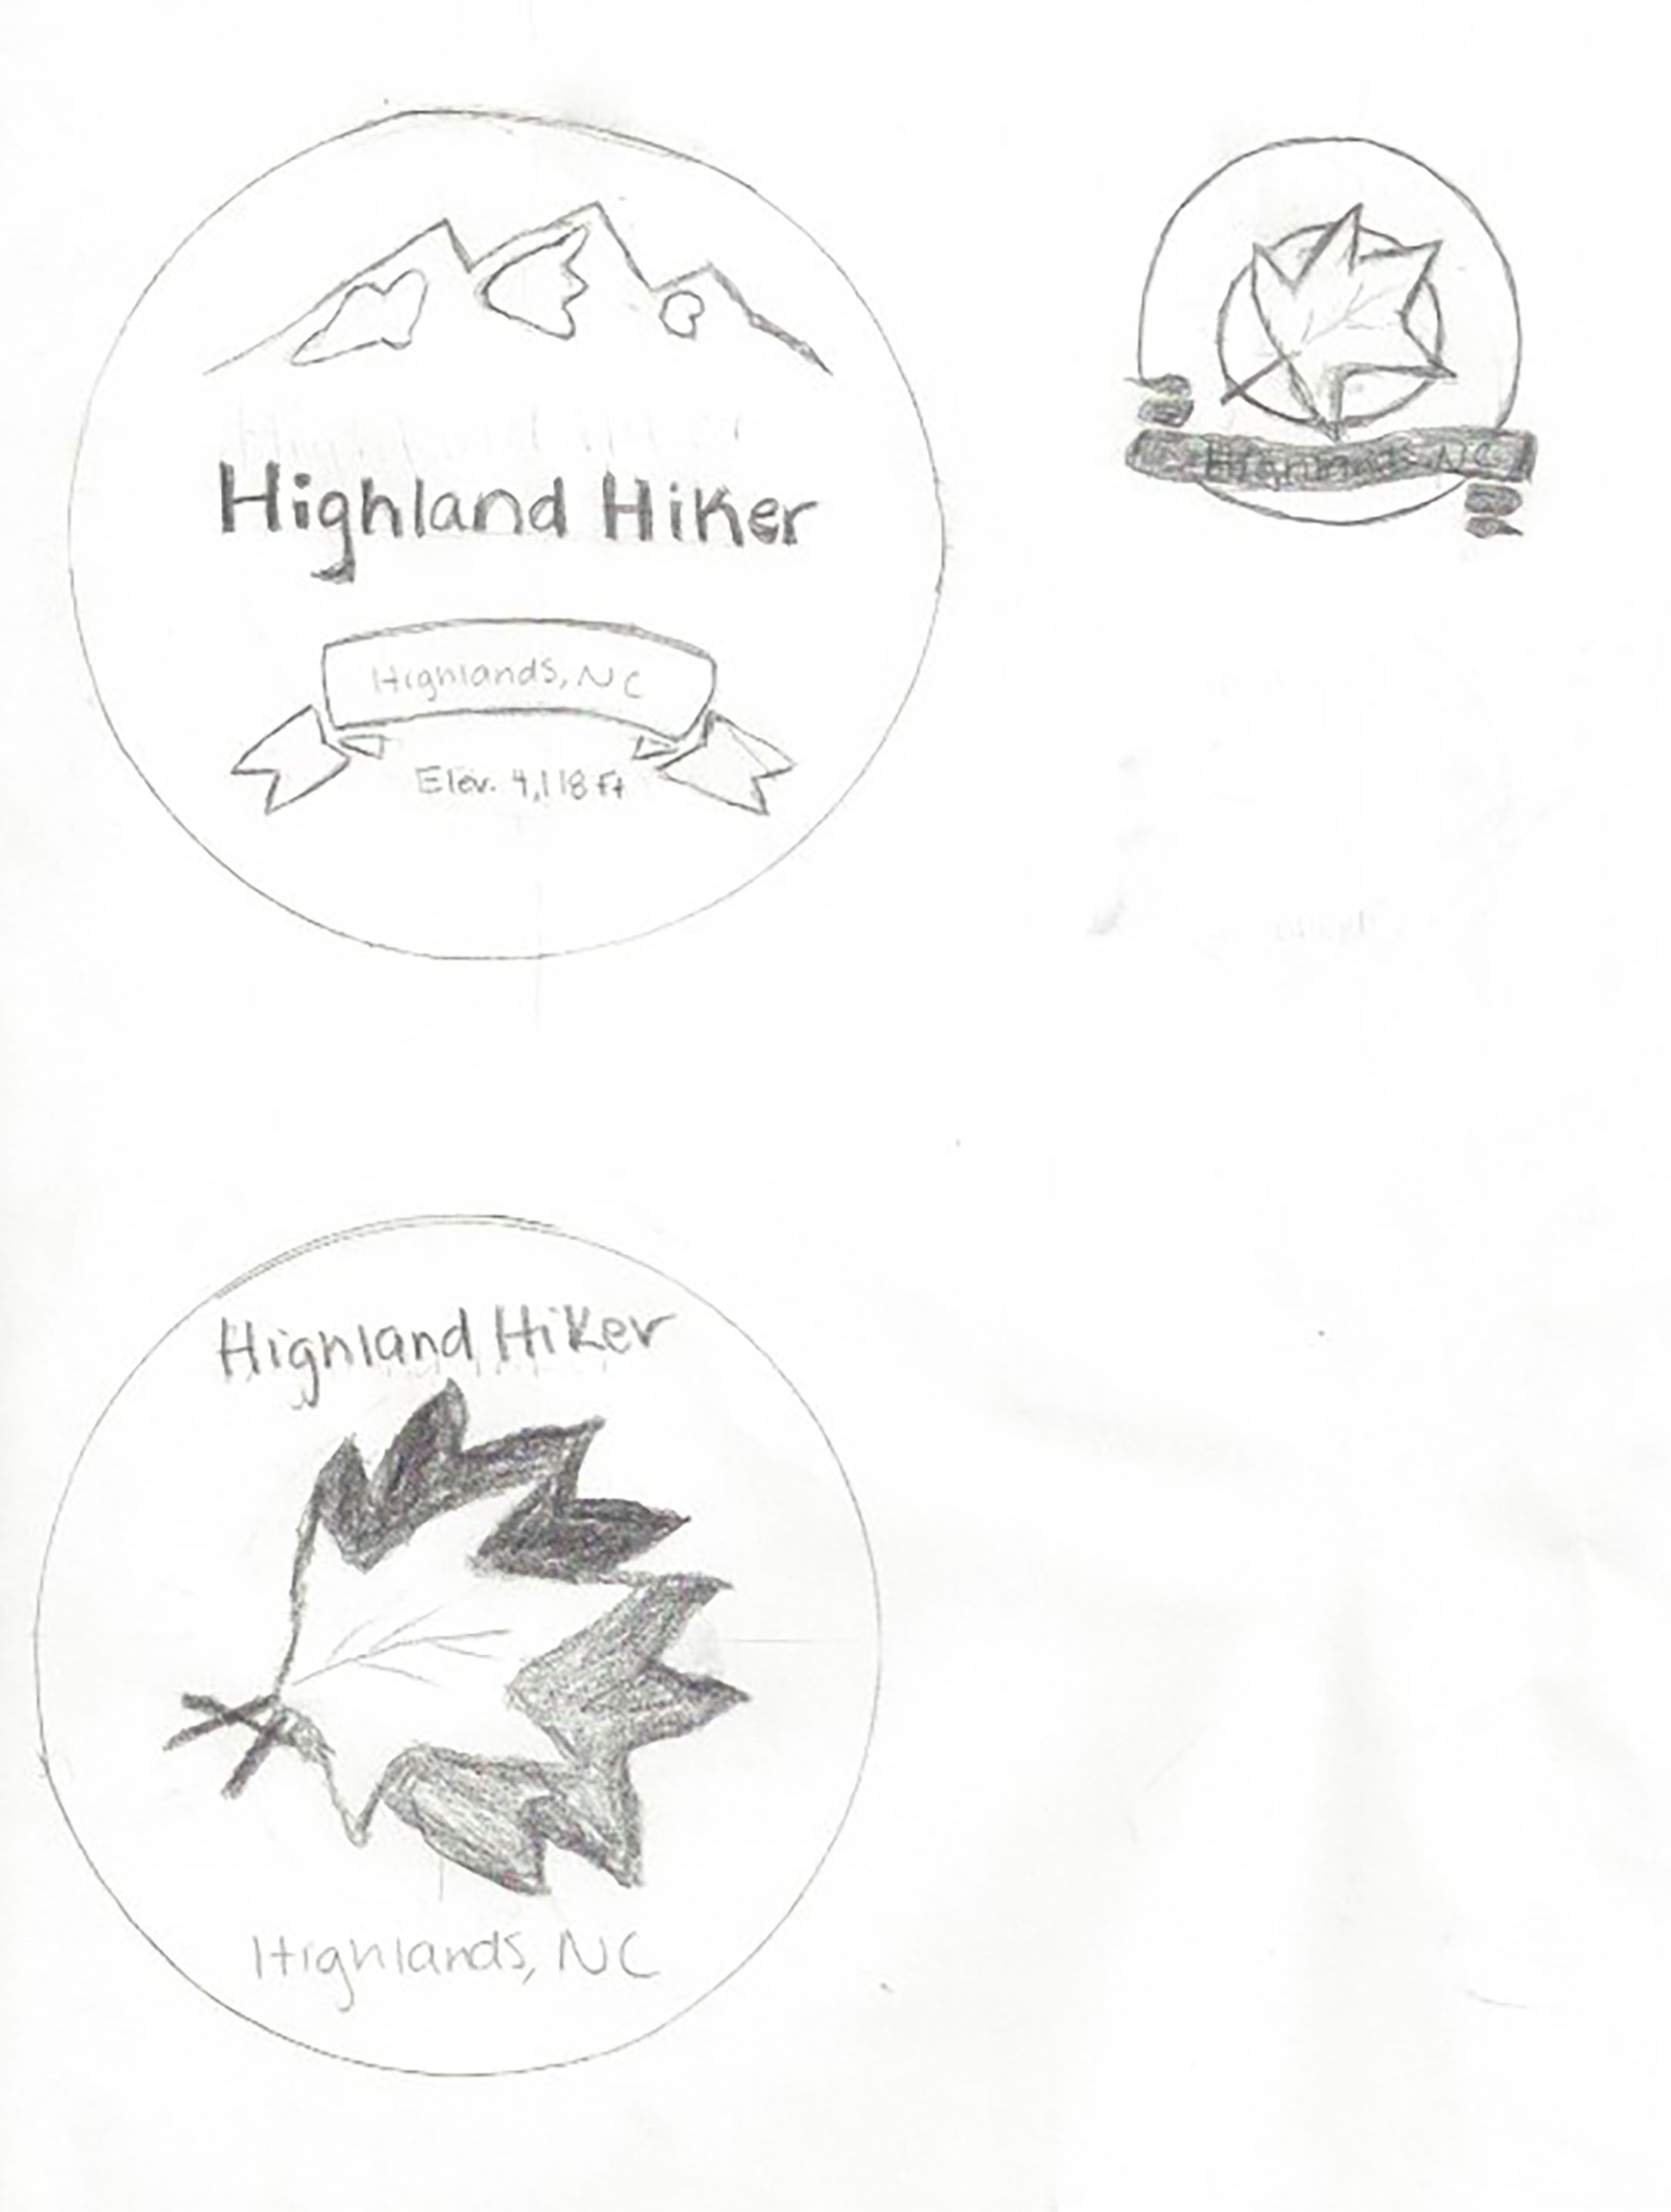 Highland Hiker
Highlands, NC
Elev. 4,118 ft
Highlands NC
Highland Hiker
Highlands, NC